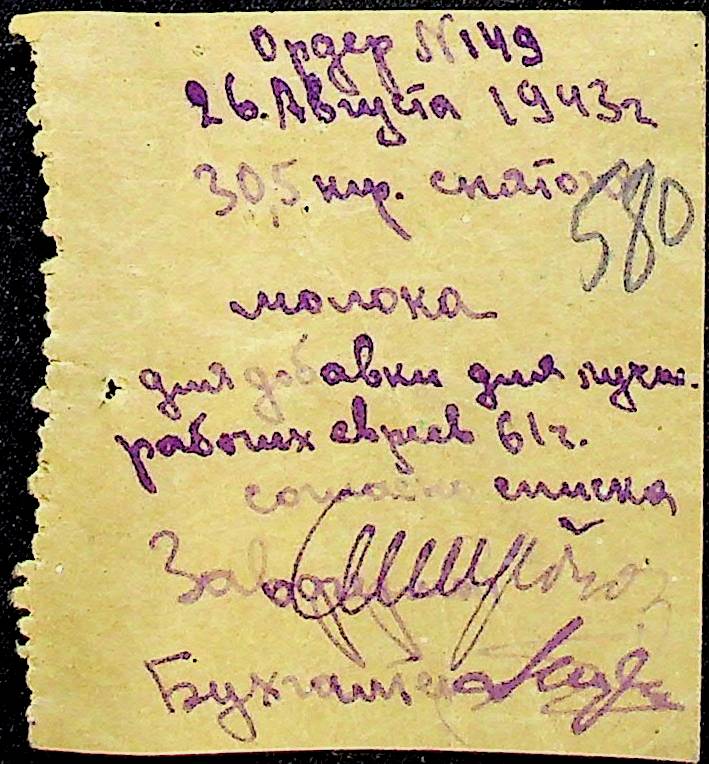 Ордер N 149
26. Августа 1943 г
30,5 кгр. снятого
580
молока
для добавки для лучш.
рабочих евреев 61 г.
согласно списка
Зав
Бухгалтер